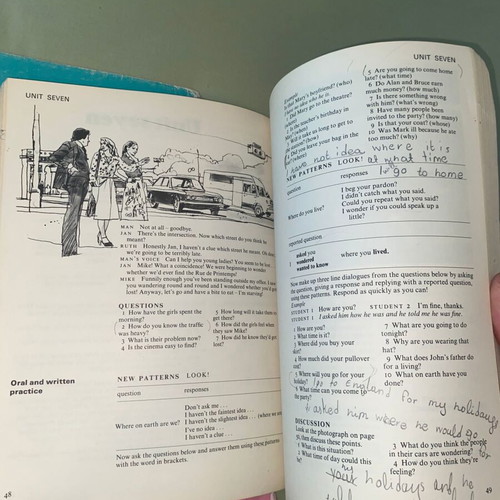 UNIT SEVEN
MAN Not at all – goodbye.
JAN There's the intersection. Now which street do you think he
meant?
RUTH Honestly Jan, I haven't a clue which street he meant. Oh
we're going to be terribly late.
MAN'S VOICE Can I help you young ladies? You seem to be lost
JAN Mike! What a coincidence! We were beginning to wonder
whether we'd ever find the Rue de Printemps!
MIKE Funnily enough you've been standing outside my office. I
you wandering round and round and I wondered whether you'd got
lost! Anyway, let's go and have a bite to eat – I'm starving!
QUESTIONS
1 How have the girls spent the
morning?
2 How do you know the traffic
was heavy?
3 What is their problem now?
4 Is the cinema easy to find?
5 How long will it take them to
get there?
6 How did the girls feel when
they saw Mike?
7 How did he know they
lost?
Oral and written
practice
NEW PATTERNS LOOK!
question responses
Where on earth are we?
Don't ask me ...
I haven't the faintest idea ...
I haven't the slightest idea ... (where we
I've no idea ...
I haven't a clue ...
Now ask the questions below and answer them using these patterns
with the word in brackets.
48
UNIT SEVEN
Example
Mary's boyfriend? (who)
idea who he is
Did Mary go to the theatre?
(when)
Is the teacher's birthday in
Will it take us long to get to
station? (how)
Did you leave your bag in the
(where)
5 Are you going to come home
late? (what time)
6 Do Alan and Bruce earn
much money? (how much)
7 Is there something wrong
with him? (what's wrong)
8 Have many people been
invited to the party? (how many)
9 Is that your cost? (whose)
10 Was Mark ill because he ate
too much? (why)
have not idea where it is
at what time
go to home
NEW PATTERNS LOOK!
question responses
Where do you live?
I beg your pardon?
I didn't catch what you said.
Could you repeat what you said?
I wonder if you could speak up a
little?
reported question
I asked you
wondered
wanted to know
where you lived.
Now make up three line dialogues from the questions below by asking
the question, giving a response and replying with a reported question,
using these patterns. Respond as quickly as you can!
Example
STUDENT 1 How are you? STUDENT 2 I'm fine, thanks.
STUDENT 1 I asked him how he was and he told me he was fine.
1 How are you?
2 What time is it?
3 Where did you buy your
4 How much did your pullover
cost?
5 Where will you go for your
holiday?
6 What time can you come to
the party?
7 What are you going to do
tonight?
8 Why are you wearing that
hat?
9 What does John's father do
for a living?
10 What on earth have you
done?
to England for my holidays
I asked him where he would go
DISCUSSION
Look at the photograph on page
then discuss these points.
1 What is this situation?
2 What time of day could this
be?
3 What do you think the people
in their cars are wearing?
4 How do you think they're
feeling?
for
my
your holidays and he
49